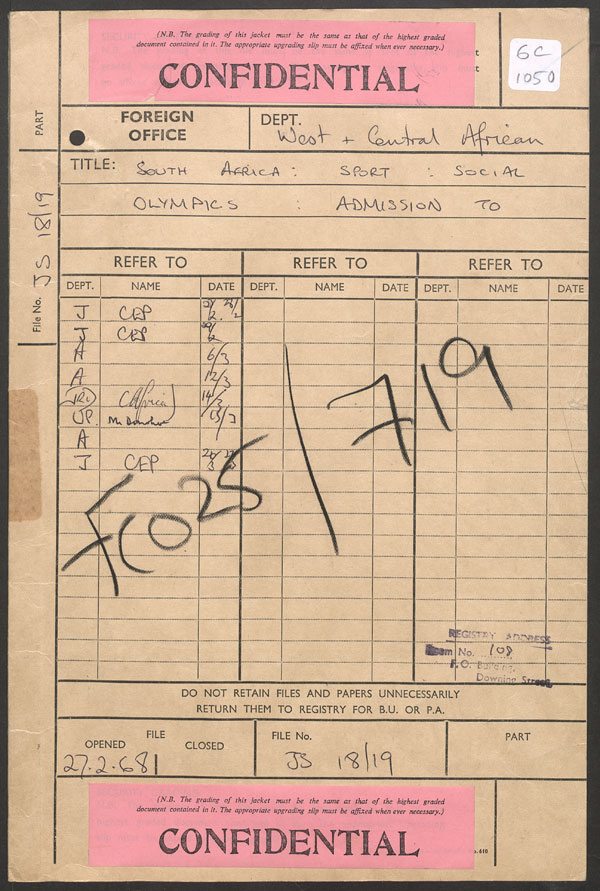 (N.B. The grading of this jacket must be the same as that of the highest graded
document contained in it. The appropriate upgrading slip must be affixed when ever necessary.)
CONFIDENTIAL
GC
1050
FOREIGN
OFFICE
DEPT.
West + Central African
TITLE: SOUTH AFRICA: SPORT : SOCIAL
OLYMPICS : ADMISSION TO
PART
File No. JS 18/19
REFER TO REFER TO REFER TO
DEPT. NAME DATE DEPT. NAME DATE DEPT. NAME DATE
J CEP
J CEP
A 6/3
A 12/3
C Africa
UP.
A
J CEP
FCO 25 / 719
REGISTRY ADDRESS
Room No. 108
F.O. Building,
Downing Street.
DO NOT RETAIN FILES AND PAPERS UNNECESSARILY
RETURN THEM TO REGISTRY FOR B.U. OR P.A.
FILE
OPENED CLOSED
27.2.68
FILE No.
JS 18/19
PART
(N.B. The grading of this jacket must be the same as that of the highest graded
document contained in it. The appropriate upgrading slip must be affixed when ever necessary.)
CONFIDENTIAL